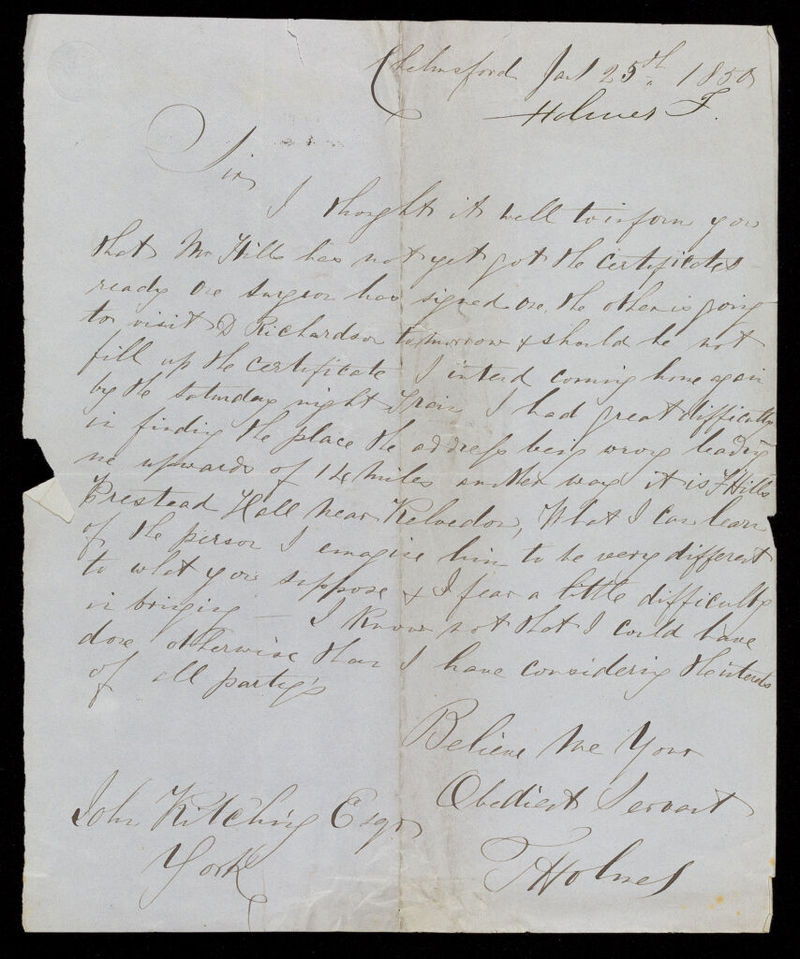 Chelmsford Jan 25th 1850
Holmes T.
Sir
I thought it well to inform you
that Mr Hills has not yet got the certificates
ready One surgeon has signed one, the other is going
to visit D Richardson tomorrow & should he not
fill up the certificate I intend coming home again
by the Saturday night Train I had great difficulty
in finding the place the address being wrong leading
me upwards of 14 miles another way it is F Hills
Prestead Hall Near Kelvedon, What I can learn
of the person I emagine him to be very different
to what you suppose & I fear a little difficulty
in bringing — I know not that I could have
done otherwise than I have considering the
of all party's
Believe Me Your
Obedient Servant
T Holmes
John Kitching Esqr
York